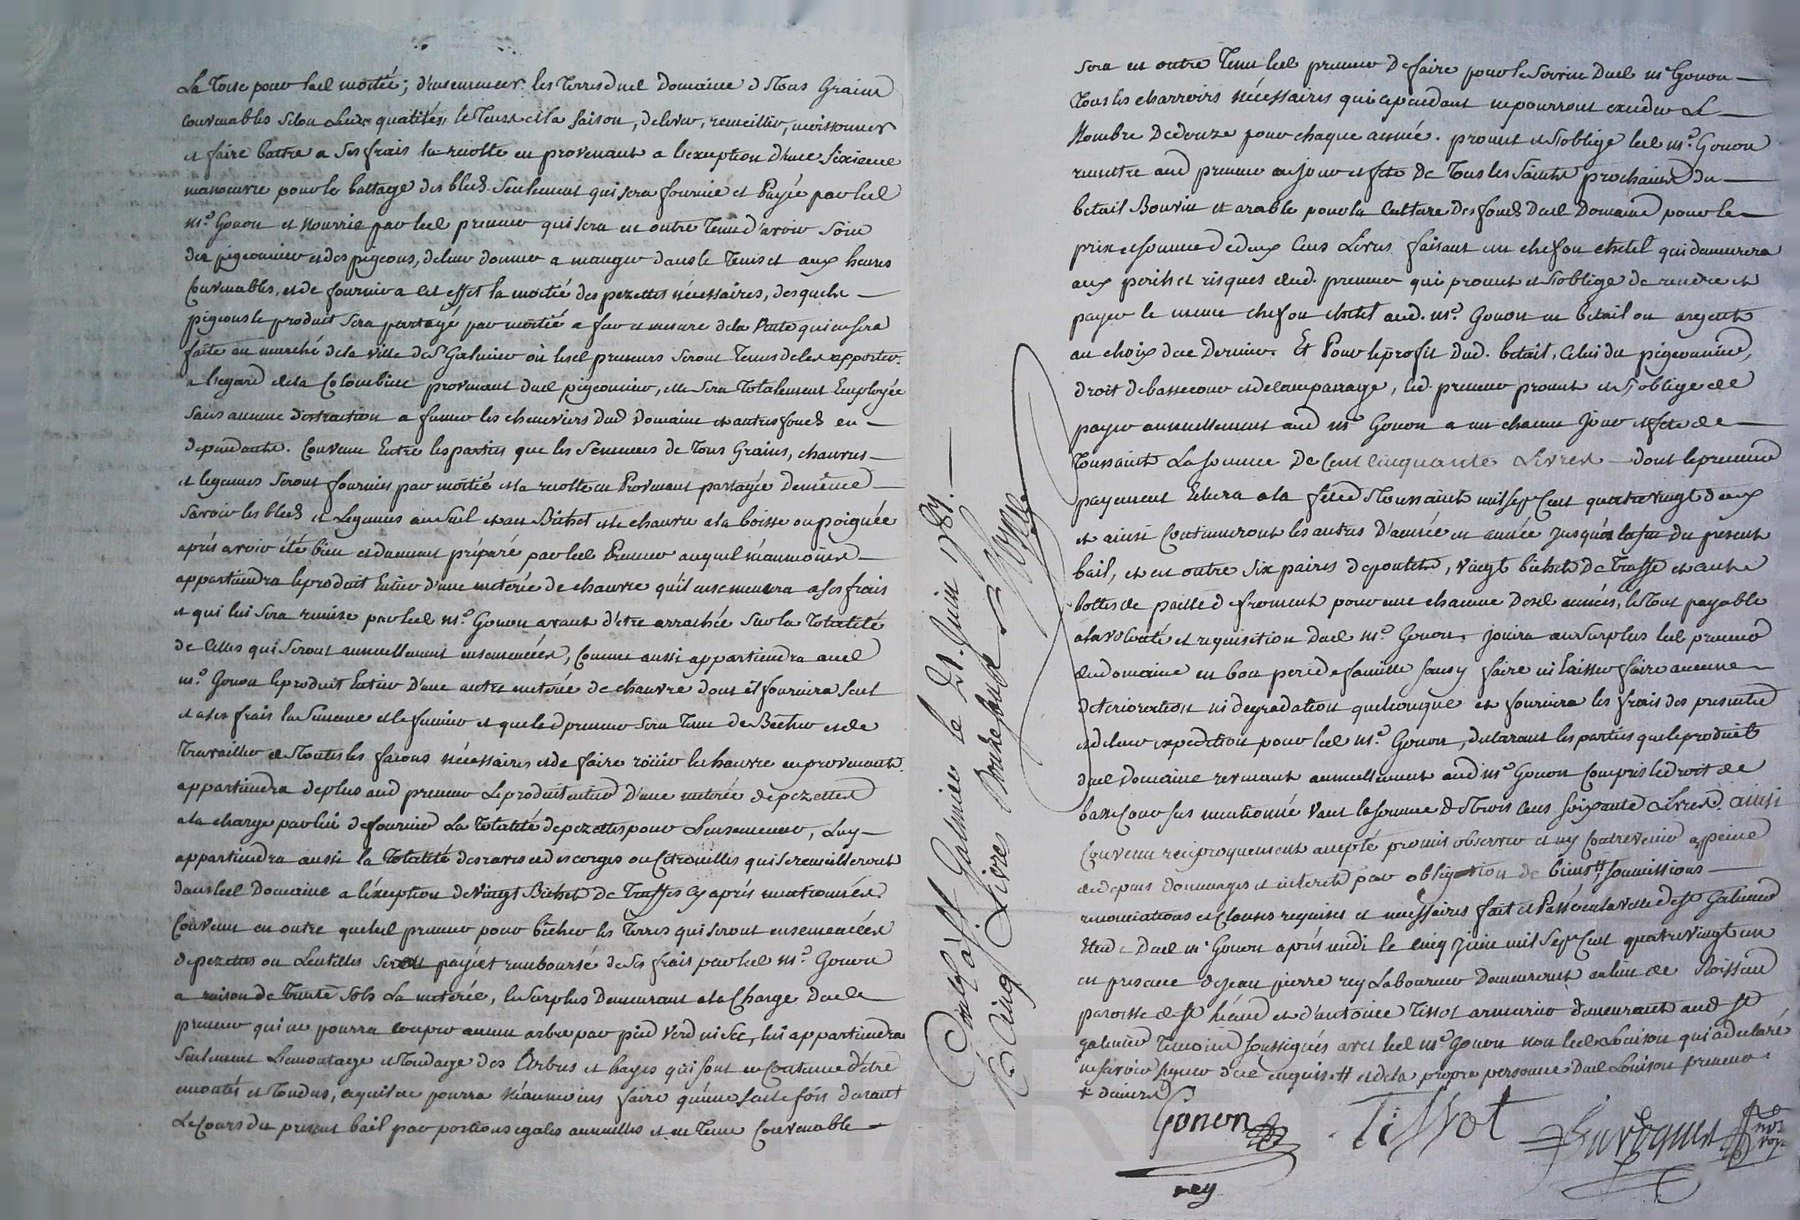 La Toise pour lad moitié; d'ensemencer les Terres dud Domaine de Tous Grains
Convenables selon Leurs qualités, le Tems et la saison, de lever, recueillir, moissonner
et faire battre a ses frais la recolte en provenant a l'exeption d'une sixieme
manoeuvre pour le battage des bleds seulement qui sera fournie et Payée par led
mr. Gonon et Nourrie par led preneur qui sera en outre Tenu d'avoir soin
du pigeonnier et des pigeons, de leur donner a manger dans le Tems et aux heures
Convenables, et de fournir a cet effet la moitié des pezettes nécessaires, desquels
pigeons le produit sera partagé par moitié a fur et mesure de la Vente qui en sera
faite au marché de la ville de St. Galmier où lesd preneurs seront Tenus de les apporter.
a l'egard de la Colombine provenant dud pigeonnier, elle sera Totalement Employée
sans aucune distraction a fumer les cheneviers dud Domaine et autres fonds en
dependants. Convenu Entre les parties que les semences de Tous Grains, chanvres
et legumes seront fournies par moitié et la recolte en Provenant partagée de même
savoir les bleds et Legumes au suel et au Bichet et le chanvre a la boisse ou poignée
après avoir été bien et dument préparé par led Preneur auquel néanmoins
appartiendra le produit Entier d'une meterée de chanvre qu'il ensemencera a ses frais
et qui lui sera remise par led mr. Gonon avant d'être arrachée sur la Totalité
de celles qui seront annuellement ensemencées, Comme aussi appartiendra aud
mr. Gonon le produit Entier d'une autre meterée de chanvre dont il fournira seul
et a ses frais la semence et le fumier et que led preneur sera Tenu de Bêcher et de
Travailler de Toutes les façons nécessaires et de faire roüir le chanvre en provenant.
appartiendra de plus aud preneur Le produit entier D'une meterée de pezettes
a la charge par lui de fournir La Totalité de pezettes pour l'ensemencer, Luy
appartiendra aussi la Totalité des raves et des corges ou Citrouilles qui se recueilleront
dans led Domaine a l'exeption de Vingt Bichets de Truffes cy après mentionnées.
Convenu en outre que led preneur pour bêcher les Terres qui seront ensemencées
de pezettes ou Lentilles sera payé et remboursé de ses frais par led mr. Gonon
a raison de Trente sols La meterée, le surplus Demeurant a la Charge dud
preneur qui ne pourra couper aucun arbre par pied Verd ni sec, lui appartiendra
seulement L'emontage et Tondage des Arbres et hayes qui sont en Coutume d'être
emontés et Tondus, ce qu'il ne pourra Néanmoins faire qu'une seule fois durant
Le cours du present bail par portions egales annuelles et en Tems Convenable
Controllé à St Galmier le 21 Juin 1781.
R. Cinq Livres Douze sols
sera en outre Tenu led preneur De faire pour le service Dud mr Gonon
Tous les charrois nécessaires qui cependant ne pourront exceder Le
Nombre De douze pour chaque année. promet et s'oblige led mr. Gonon
remettre aud preneur au jour et fête De Tous les Saints prochaine du
betail Bouvin et arable pour la Culture Des fonds Dud Domaine pour le
prix et somme De deux Cens Livres faisant un chef ou chetel qui demeurera
aux perils et risques dud. preneur qui promet et s'oblige de rendre et
payer le meme chef ou chetel aud. mr. Gonon en betail ou argent
au choix de ce Dernier. Et Pour le profit Dud. betail, Celui du pigeonnier,
droit de bassecour et de lamparage, led. preneur promet et s'oblige de
payer annuellement aud mr Gonon a un chacun Jour et fête de
Toussaints La somme De Cent cinquante Livres dont le premier
payement Echera a la fête de Toussaint mil sept Cent quatrevingt deux
et ainsi Continueront les autres D'année en année jusqu'a la fin Du present
bail, et en outre six paires de poulets, Vingt bichets De Truffe et cent
bottes de paille de froment pour une chacune Desd années, le Tout payable
a la volonté et requisition Dud mr. Gonon. jouira au surplus led preneur
dud domaine en bon pere de famille sans y faire ni laisser faire aucune
deterioration ni degradation quelconque et fournira les frais des presentes
et de leur expedition pour led mr. Gonon, declarant les parties que le produit
dud Domaine revenant annuellement aud mr Gonon Compris le droit de
basse Cour sus mentionné Vaut la somme de Trois Cens soixante Livres. ainsi
Convenu reciproquement accepté promis observer et n'y Contrevenir a peine
de depens dommages et interets par obligation de biens, soumissions
renonciations et Clauses requises et necessaires fait et Passé en la ville de St Galmier
Etude Dud mr Gonon après midi le cinq Juin mil sept Cent quatre vingt un
en presence de jean pierre rey Laboureur Demeurant au lieu de
paroisse de St Héand et d'antoine Tissot armurier demeurant aud St
galmier Temoins soussignés avec led mr. Gonon non led Louison qui a declaré
ne savoir signer de ce enquis. et de la propre personne Dud Louison preneur
Gonon Tissot
rey